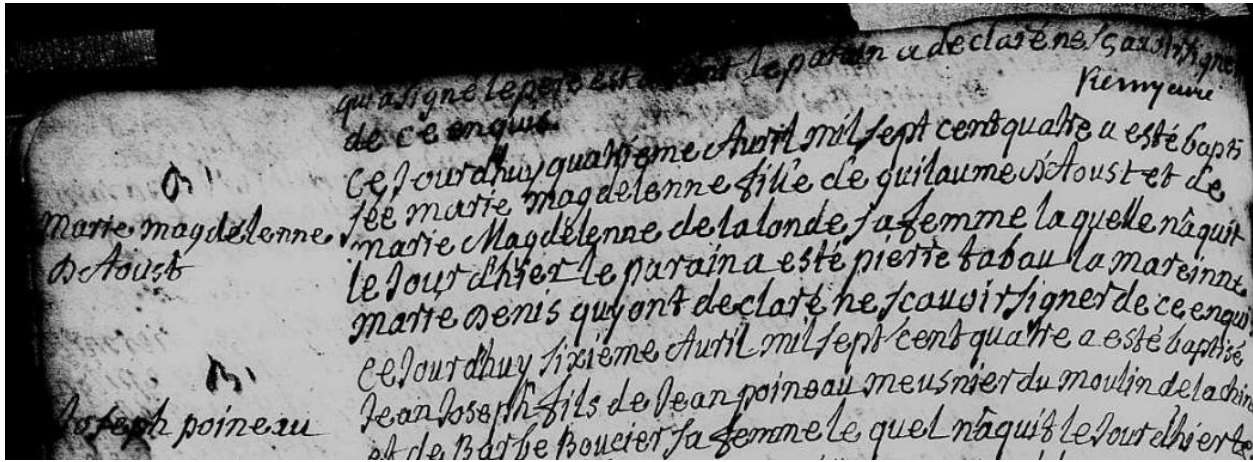 qui a signé le pere est absent le parain a declaré ne sçavoir signe
de ce enquis.
Remy curé
B
Marie magdelenne
D'Aoust
ce Jourdhuy quatrieme Avril mil sept cent quatre a esté bapti
sée marie magdelenne fille de guilaume D'Aoust et de
marie Magdelenne de lalonde sa femme laquelle nâquit
le Jour d'hier le parain a esté pierre tabau la mareinne
marie Denis quy ont declaré ne scavoir signer de ce enquis
B
Joseph poineau
ce Jourdhuy sixieme Avril mil sept cent quatre a esté baptisé
Jean Joseph fils de Jean poineau meusnier du moulin de lachin
et de Barbe Boucier sa femme le quel nâquit le Jour d'hier le